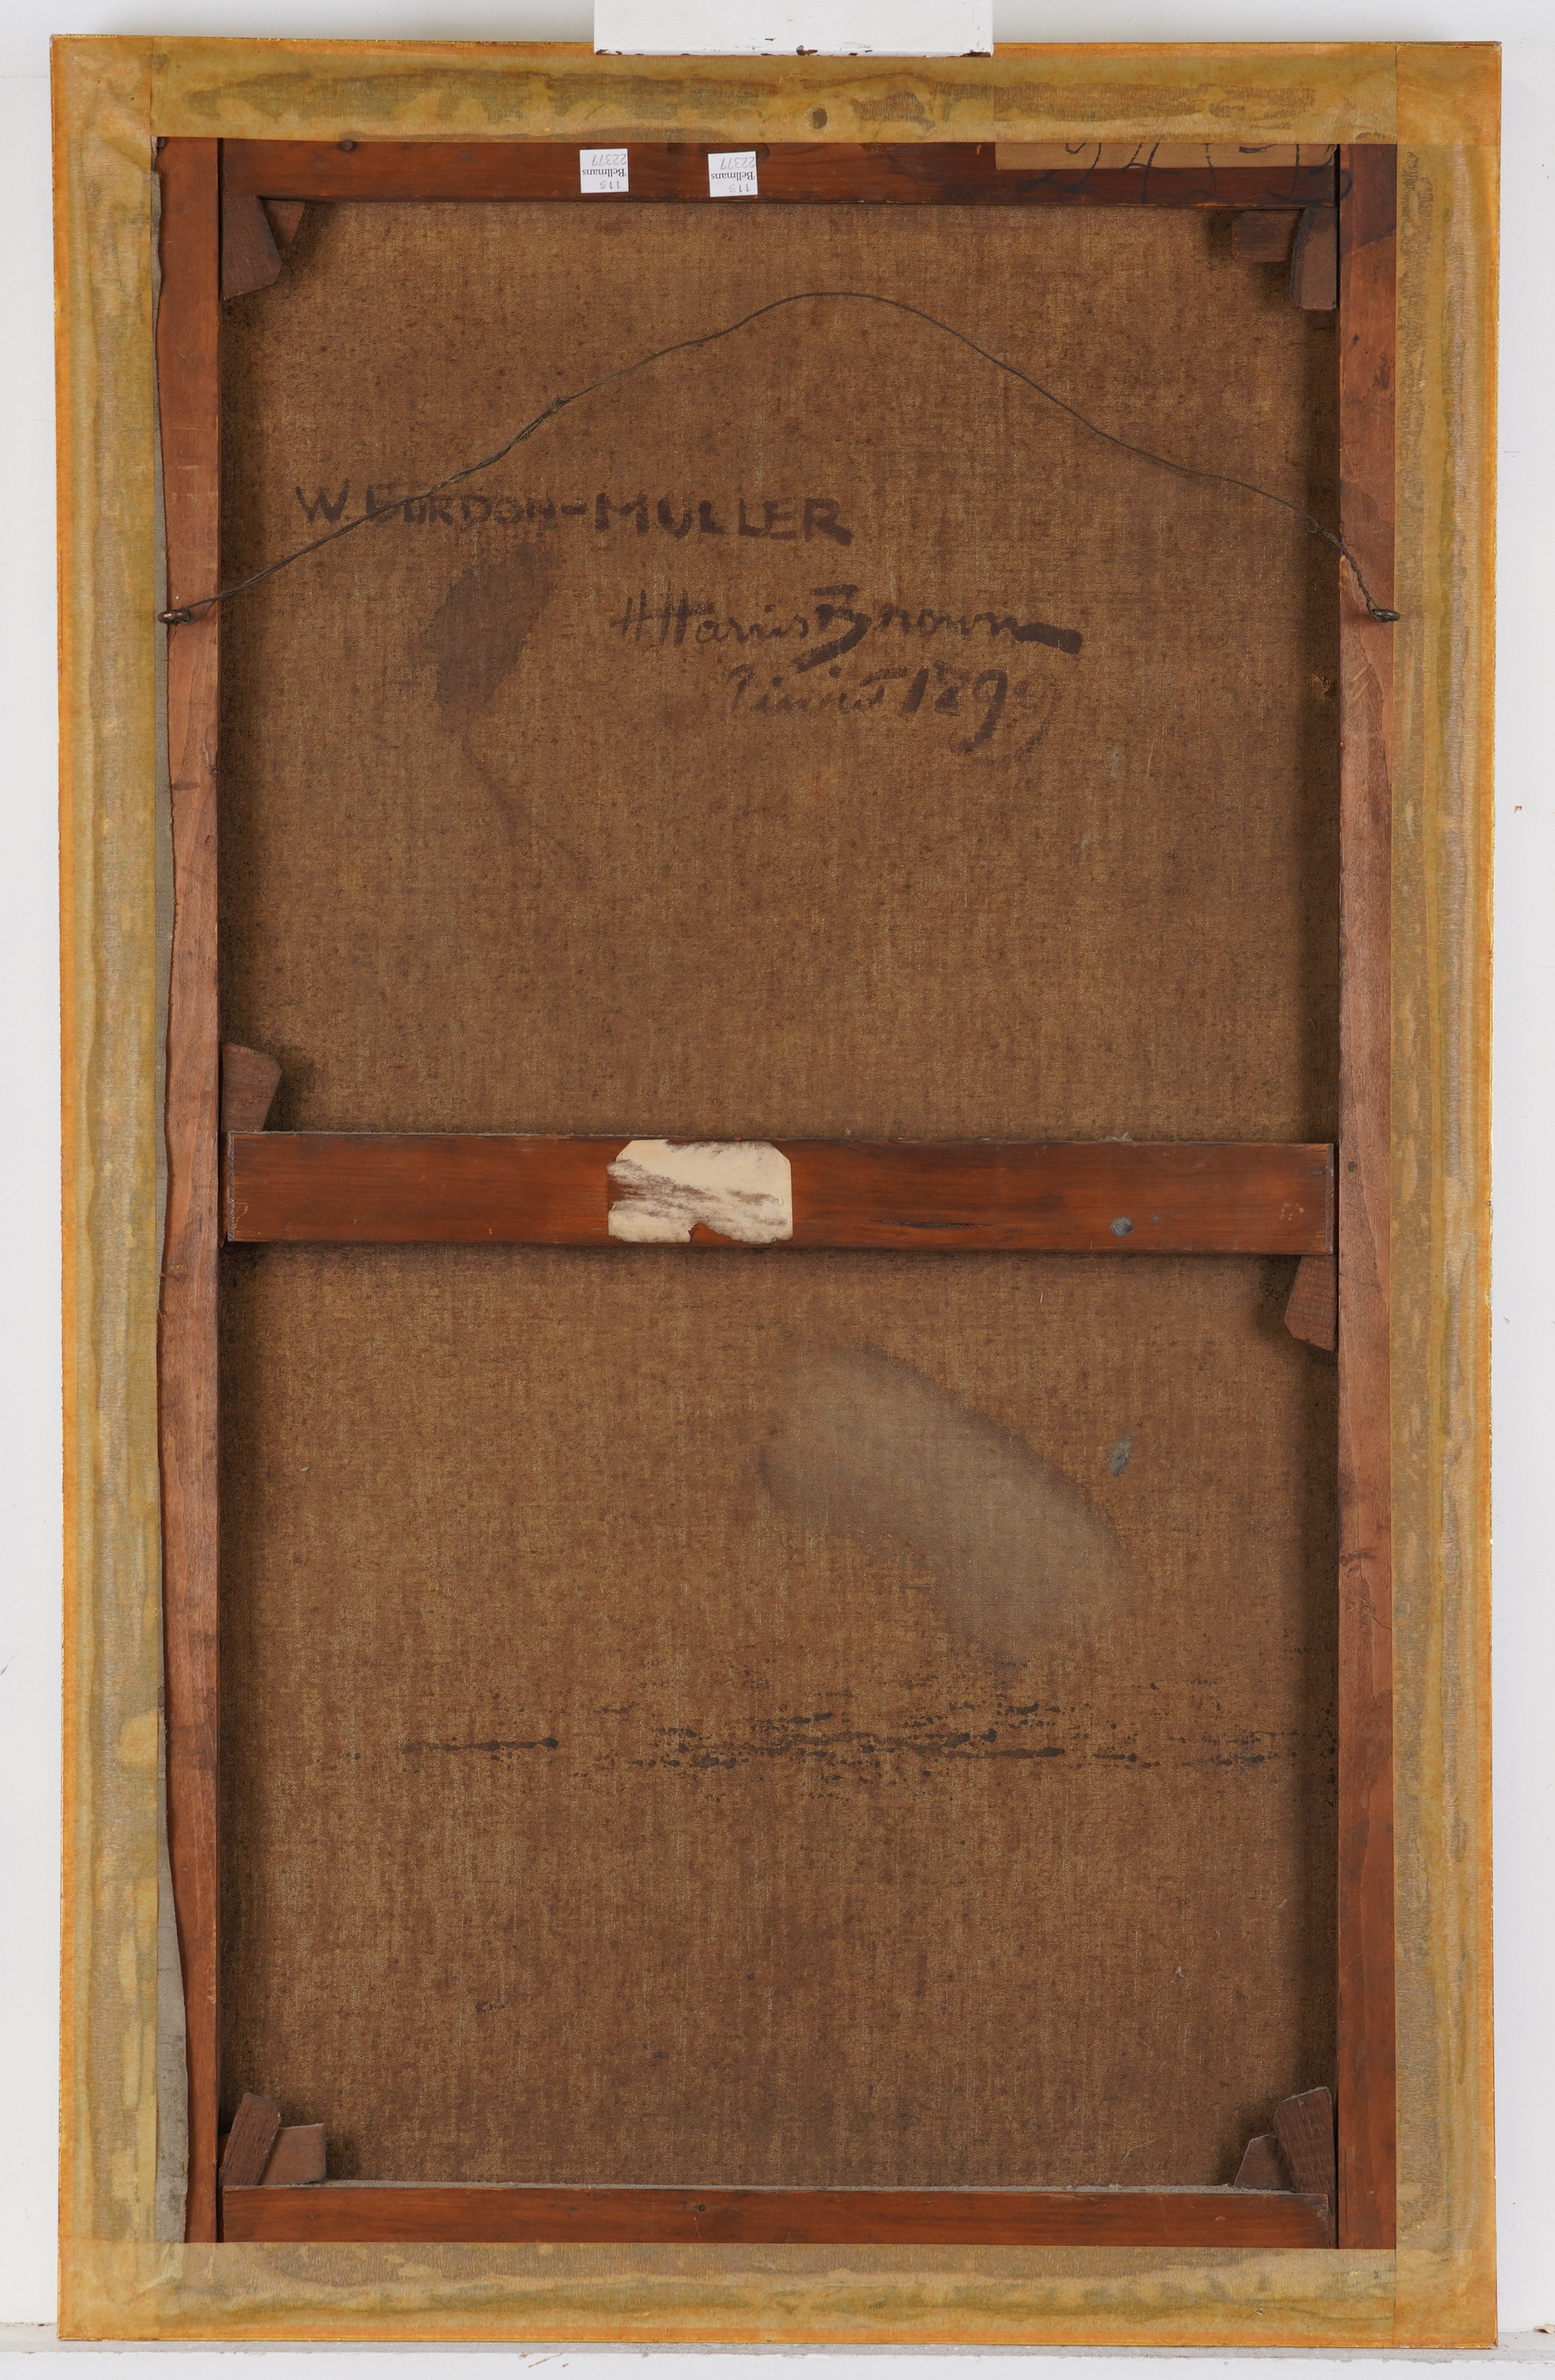 115
Bellmans
22377
115
Bellmans
22377
W. GORDON-MULLER
H Harris Brown
Pinxit 189